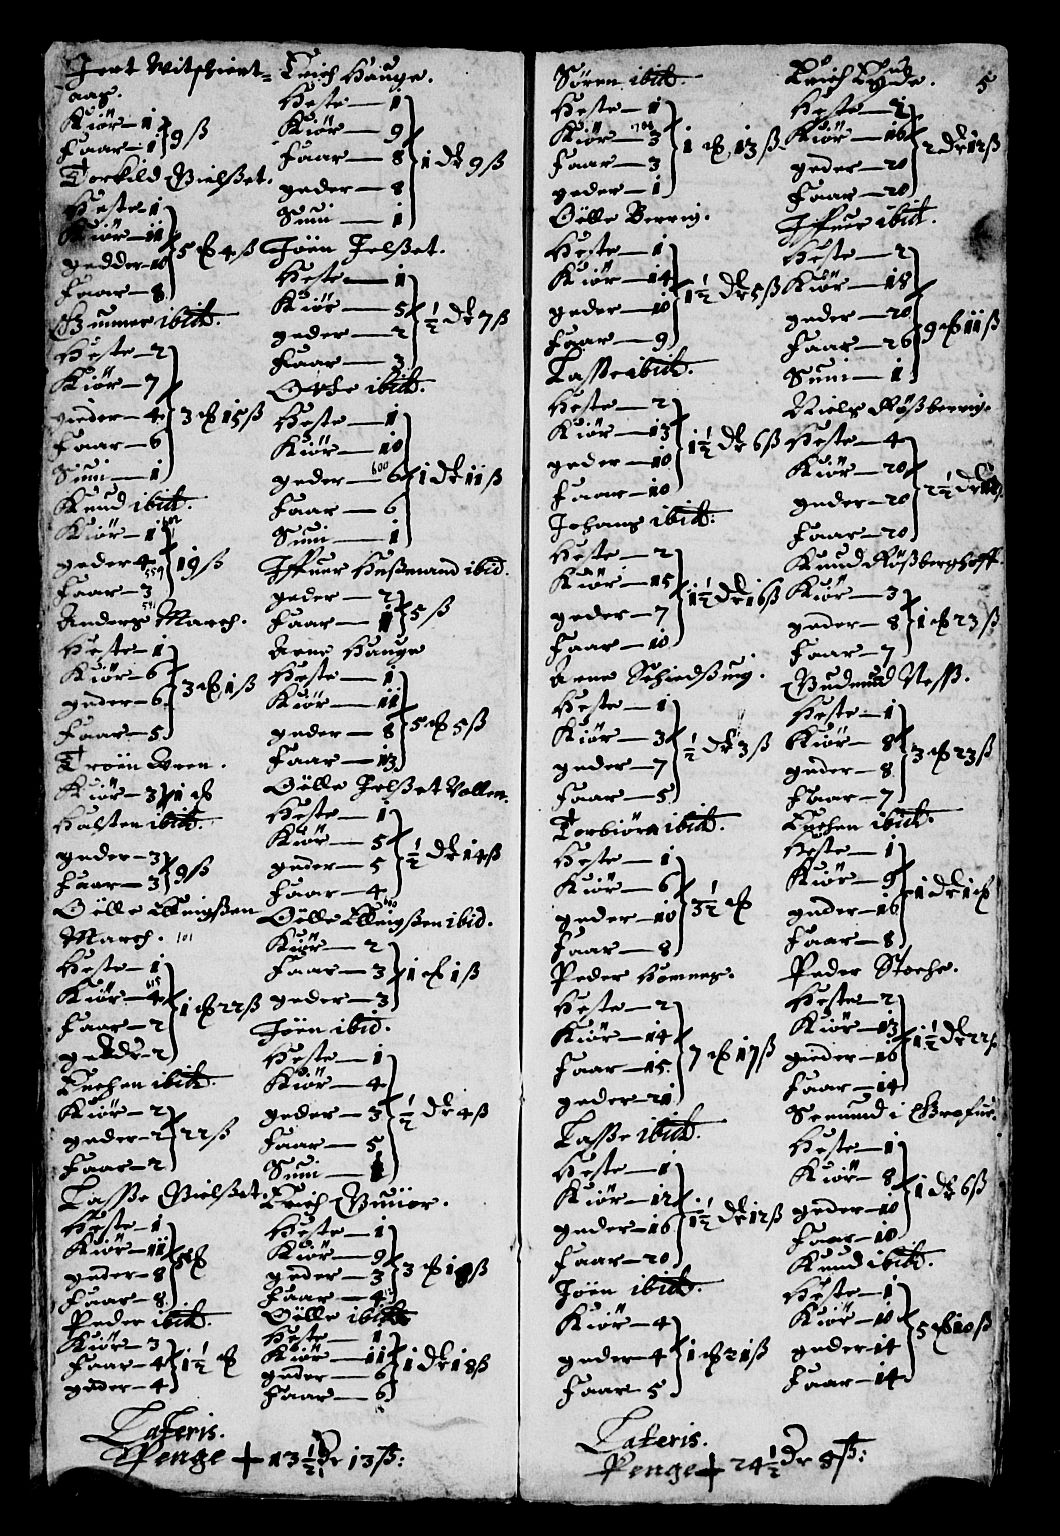 aas.
Kiör — 1
Faar — 1 } 9 ß
Torkild Bielßet.
Heste 1
Kiör — 11
gedder — 10 } 5 4 ß
Faar — 8
Gunner ibid.
Heste — 2
Kiör — 7
gieder — 4 } 3 15 ß
Faar — 6
Suin — 1
Knud ibid.
Kiör — 1
geder 4 } 19 ß
Faar — 3
Anders March.
Heste — 1
Kiör — 6
geder — 6 } 3 1 ß
Faar — 5
Kiör — 3 } 1
Halsten ibid.
geder — 3
Faar — 3 } 9 ß
Oölle
March. 101
Heste — 1
Kiör — 4
Faar — 2 } 1 22 ß
geder — 2
ibid.
Kiör — 2
geder — 2 } 22 ß
Faar — 2
Lasse Bielßet.
Heste — 1
Kiör — 11
geder — 8
Faar — 8
Peder ibid.
Kiör — 3
Faar — 4 } 1½
geder — 4
Erich Hauge.
Heste — 1
Kiör — 9
Faar — 8 } 1 dr 9 ß
geder — 8
Suin — 1
Joen Jelßet.
Heste — 1
Kiör — 5
geder — 2 } ½ dr 7 ß
Faar — 3
ibid.
Heste — 1
Kiör — 10
geder — 6 } 1 dr 11 ß
Faar — 6
Suin — 1
Iffuer Hußmand ibid.
geder — 2
Faar — 1 } 5 ß
Arne Hauge
Heste — 1
Kiör — 11
geder — 8 } 5 5 ß
Faar — 13
Oölle Jelßet Vollen.
Heste — 1
Kiör — 5
geder — 5 } ½ dr 14 ß
Faar — 4
Oölle ibid.
Kiör — 2
Faar — 3 } 1 1 ß
geder — 3
Joen ibid.
Heste — 1
Kiör — 4
geder — 3 } ½ dr 4 ß
Faar — 5
Suin — 1
Erich
Heste — 1
Kiör — 9
geder — 3 } 3 18 ß
Faar — 4
Oölle ibid.
Heste — 1
Kiör — 11
geder — 6 } 1 dr 18 ß
Faar — 6
Lateris.
Penge + 13½ dr 13 ß:
Sören ibid.
Heste — 1
Kiör — 3
Faar — 3 } 1 13 ß
geder — 1
Oölle Berrig.
Heste — 1
Kiör — 14
geder — 10 } 1½ dr 5 ß
Faar — 9
Lasse ibid.
Heste — 2
Kiör — 13
geder — 10 } 1½ dr 6 ß
Faar — 10
Johans ibid:
Heste — 2
Kiör — 15
geder — 7 } 1½ dr 16 ß
Faar — 10
Arne
Heste — 1
Kiör — 3
geder — 7 } ½ dr 3 ß
Faar — 5
Torbiörn ibid.
Heste — 1
Kiör — 6
geder — 10 } 3½
Faar — 8
Peder Homnes.
Heste — 2
Kiör — 14
Faar — 15 } 7 17 ß
geder — 21
Lasse ibid.
Heste — 1
Kiör — 12
geder — 16 } 1½ dr 12 ß
Faar — 20
Joen ibid.
Kiör — 4
geder — 4 } 1 21 ß
Faar — 5
5
Erich
Heste — 2
Kiör — 16
geder — 20 } 2 dr 12 ß
Faar — 20
Iffuer ibid.
Heste — 2
Kiör — 18
geder — 20
Faar — 26 } 9 11 ß
Suin — 1
Niels Rößberrig.
Heste — 4
Kiör — 20
geder — 20 } 2½ dr
Faar — 20
Knud Rößberghoff
Kiör — 3
geder — 8 } 1 23 ß
Faar — 7
Gudmund Neß.
Heste — 1
Kiör — 8
geder — 8 } 3 23 ß
Faar — 7
ibid.
Heste — 1
Kiör — 9
geder — 16 } 1 dr 1
Faar — 8
Peder
Heste — 2
Kiör — 13
geder — 16 } 1½ dr 22 ß
Faar — 14
Heste — 1
Kiör — 8
geder — 10 } 1 dr 6 ß
Faar — 10
Knud ibid.
Heste — 1
Kiör — 10
geder 14 } 5 10 ß
Faar — 14
Lateris.
Penge + 24½ dr 8 ß: